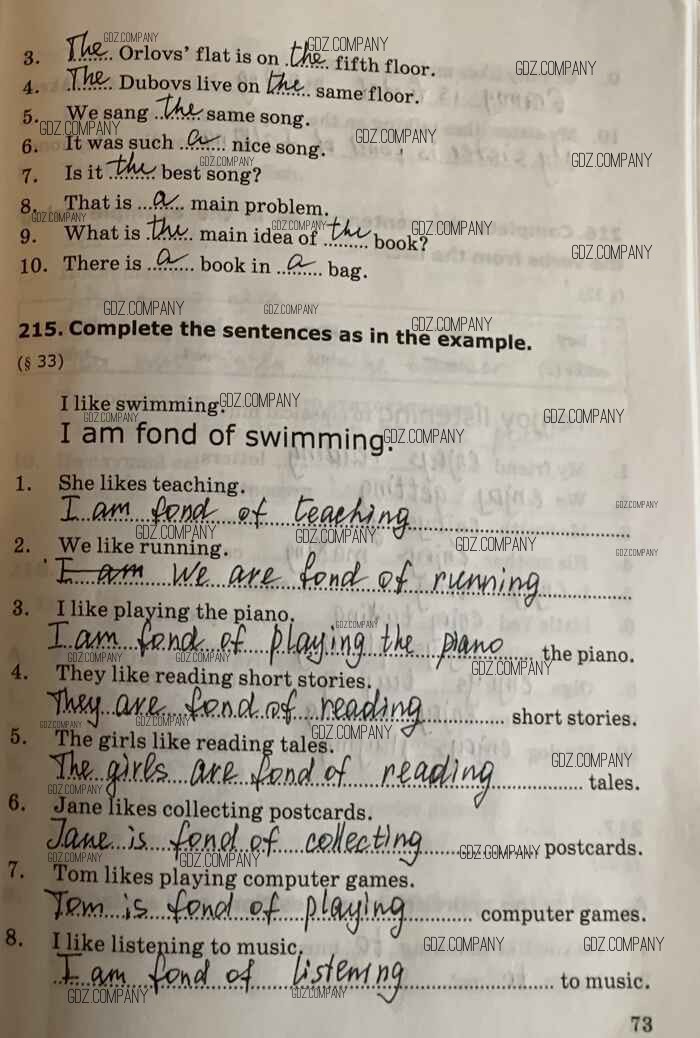 3. The Orlovs' flat is on the fifth floor.
4. The Dubovs live on the same floor.
5. We sang the same song.
6. It was such a nice song.
7. Is it the best song?
8. That is a main problem.
9. What is the main idea of the book?
10. There is a book in a bag.
215. Complete the sentences as in the example.
(§ 33)
I like swimming.
I am fond of swimming.
1. She likes teaching.
I am fond of teaching
2. We like running.
I am We are fond of running
3. I like playing the piano.
I am fond of playing the piano the piano.
4. They like reading short stories.
They are fond of reading short stories.
5. The girls like reading tales.
The girls are fond of reading tales.
6. Jane likes collecting postcards.
Jane is fond of collecting postcards.
7. Tom likes playing computer games.
Tom is fond of playing computer games.
8. I like listening to music.
I am fond of listening to music.
73
GDZ.COMPANY